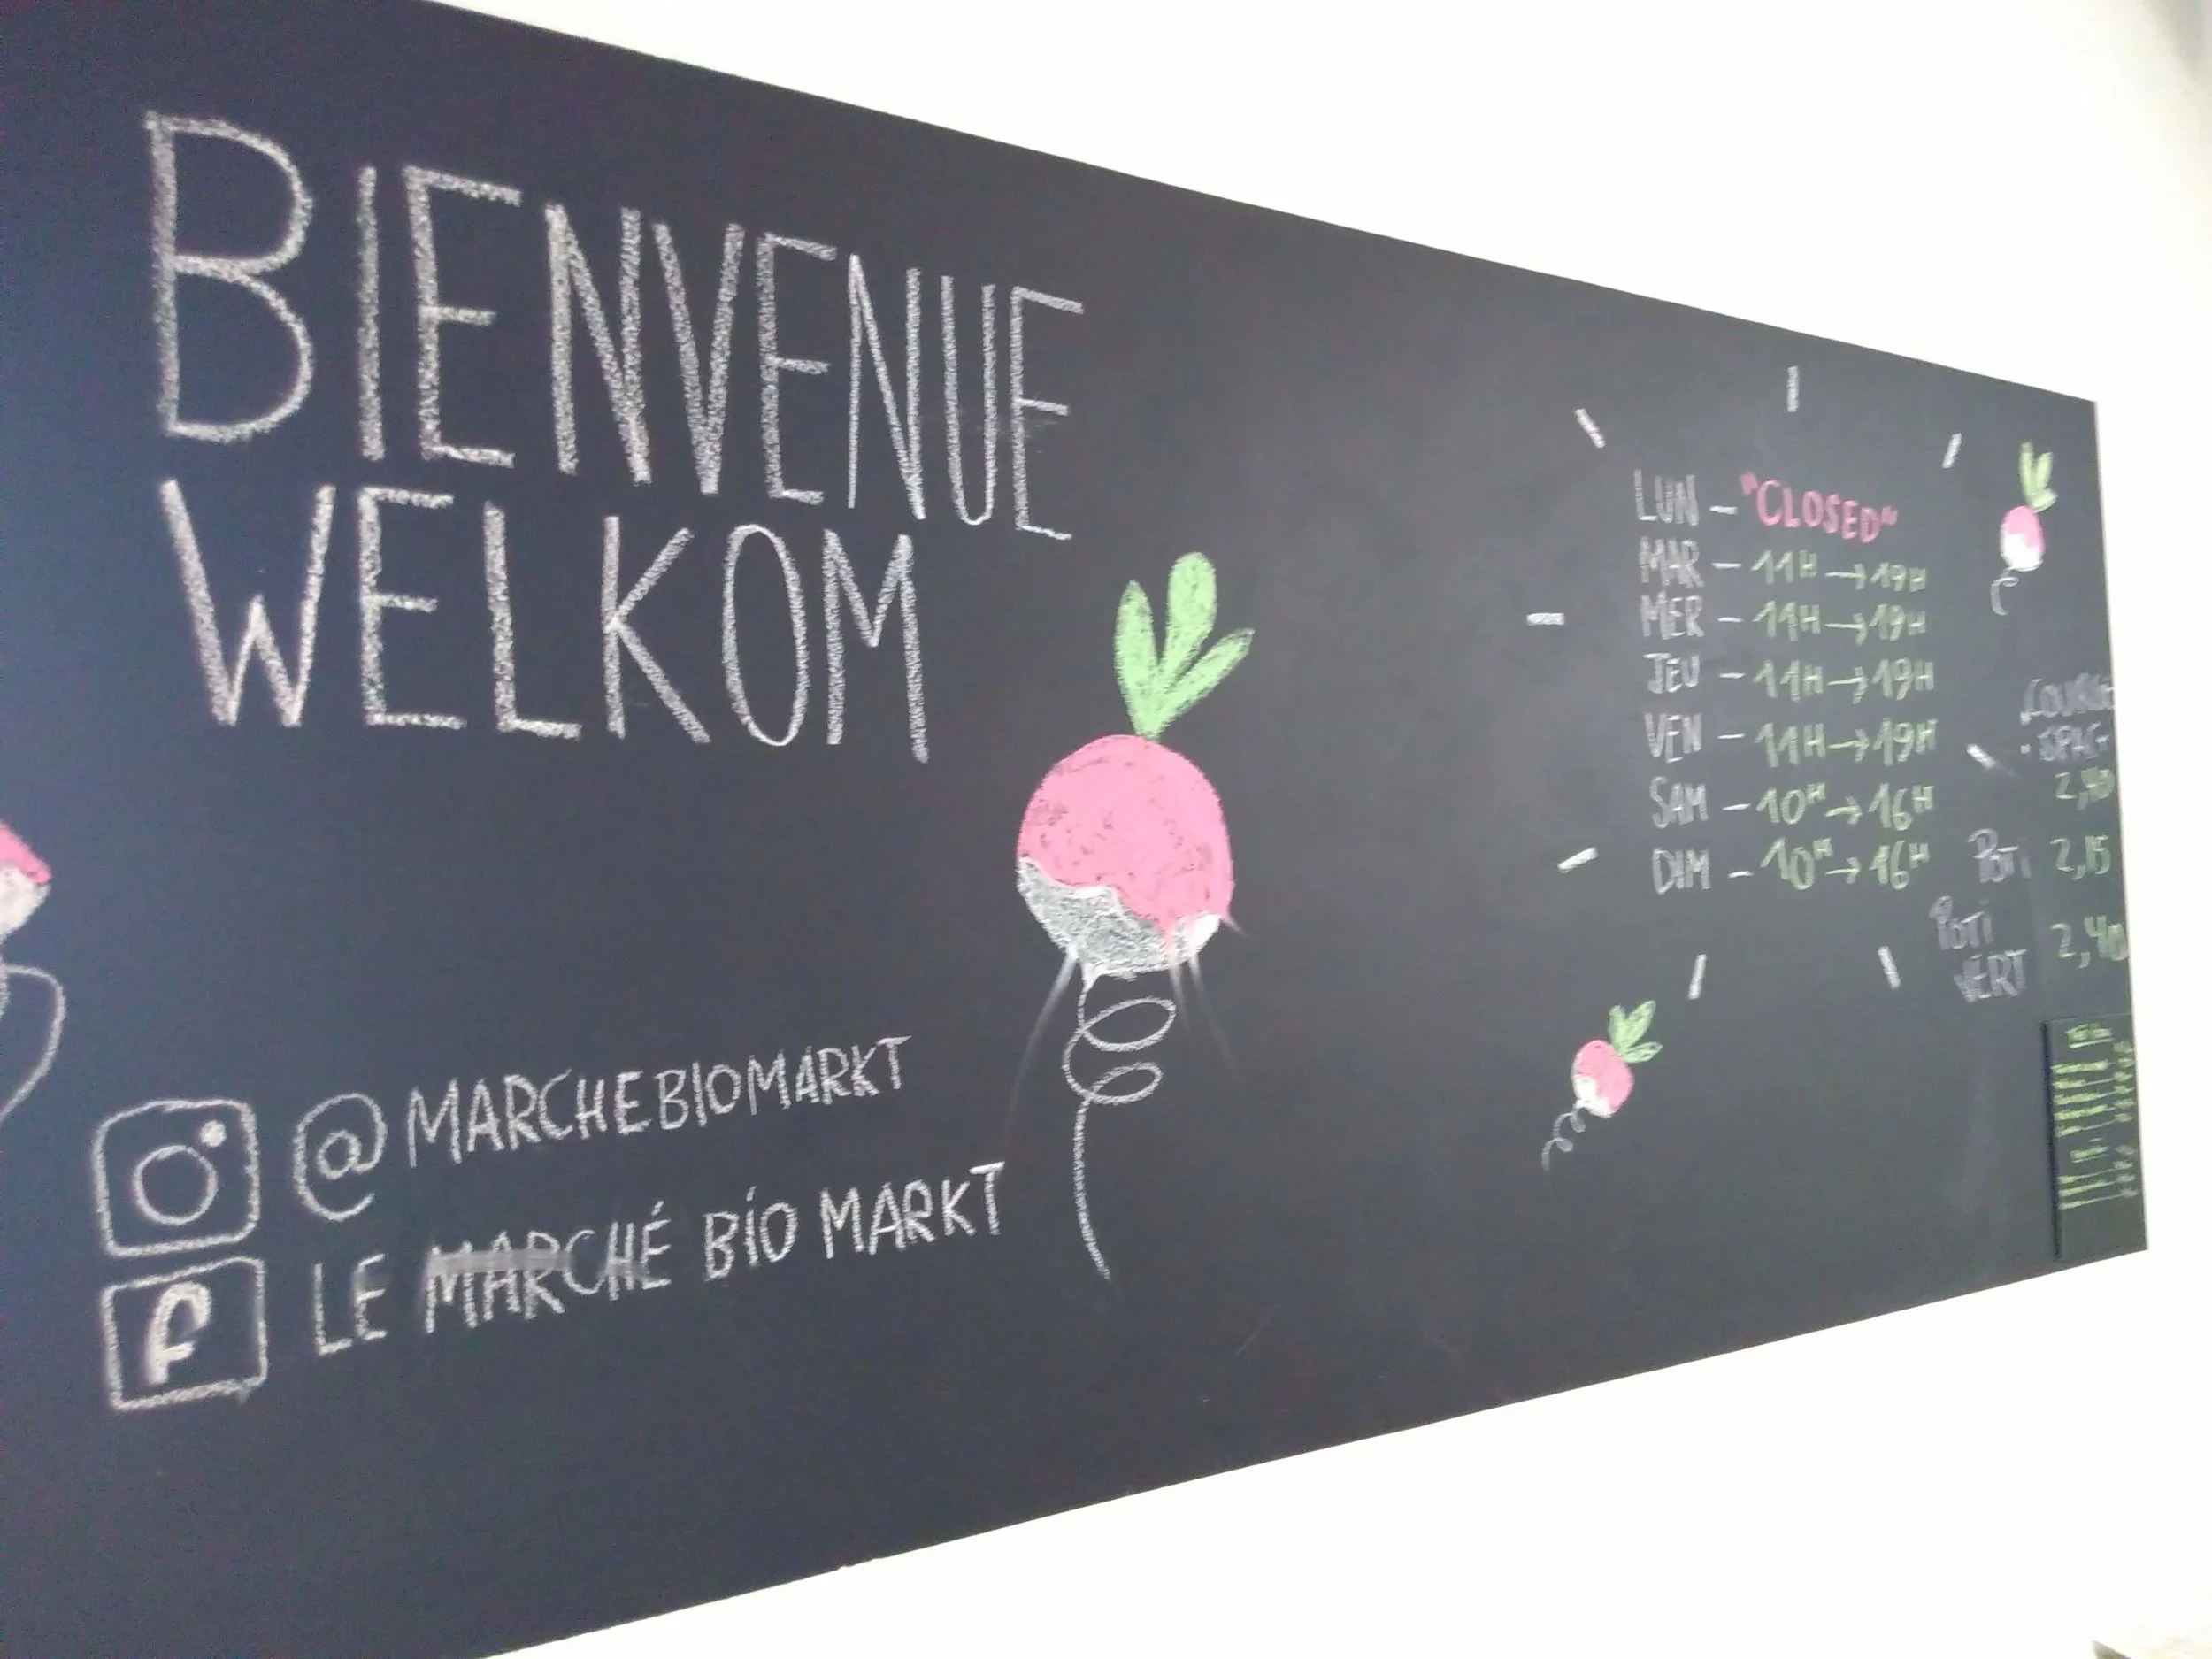 BIENVENUE
WELKOM
@MARCHEBIOMARKT
f LE MARCHÉ BIO MARKT
LUN - "CLOSED"
MAR - 11H → 19H
MER - 11H → 19H
JEU - 11H → 19H
VEN - 11H → 19H
SAM - 10H → 16H
DIM - 10H → 16H
2,40
POTI 2,15
POTI
VERT 2,40